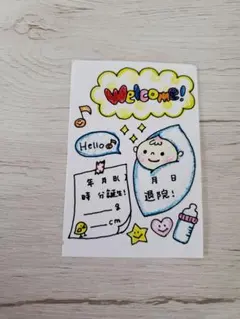 Welcome!
Hello
年 月 日(
時 分 誕生!
g
cm
月 日
退院!